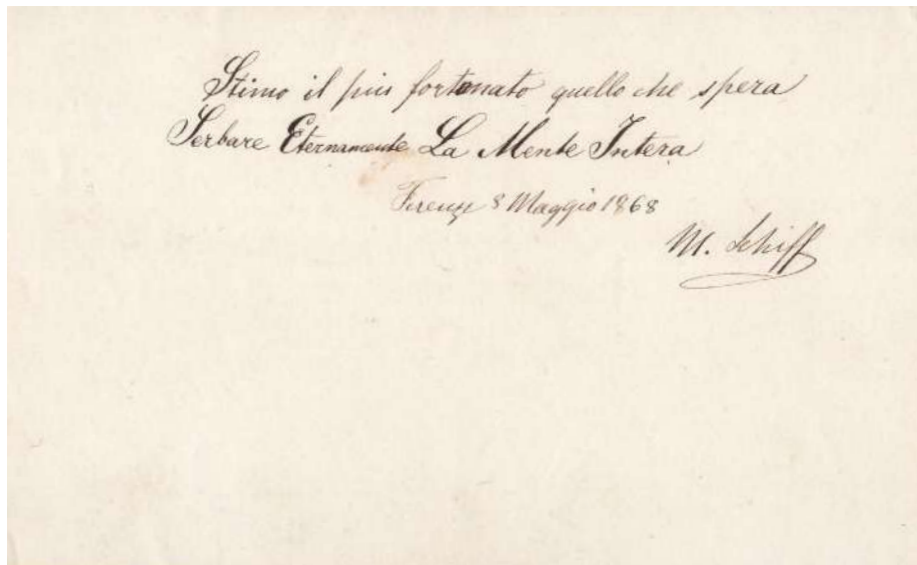 Stimo il piu fortunato quello che spera
Serbare Eternamente La Mente Intera
Firenze 8 Maggio 1868
M. Schiff